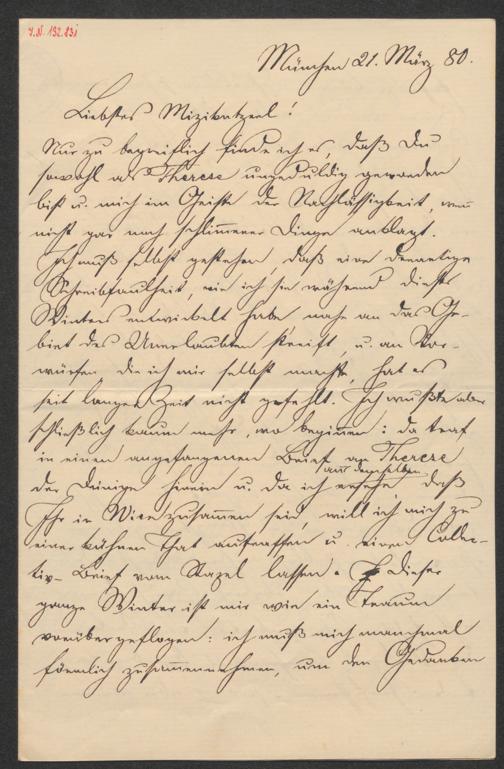 I.N. 132.231
München 21. März 80.
Liebstes Mizikatzerl!
Nur zu begreiflich finde ich es, daß Du
sowohl als Therese ungeduldig geworden
bist u. mich im Geiste der Nachlässigkeit, wenn
nicht gar noch schlimmerer Dinge anklagt.
Ich muß selbst gestehen, daß eine derartige
Schreibfaulheit, wie ich sie während dieses
Winters entwickelt habe, nahe an das Ge-
biet des Unerlaubten streift, u. an Vor-
würfen die ich mir selbst machte, hat es
seit langer Zeit nicht gefehlt. Ich wußte aber
schließlich kaum mehr, wo beginnen: da traf
in einen angefangenen Brief an Therese
der Deinige herein u. da ich aus demselben ersehe, daß
Ihr in Wien zusammen seid, will ich mich zu
einer kühnen That aufraffen u. einen Collec-
tiv-Brief vom Stapel lassen. Dieser
ganze Winter ist mir wie ein Traum
vorübergeflogen: ich muß mich manchmal
förmlich zusammennehmen, um den Gedanken